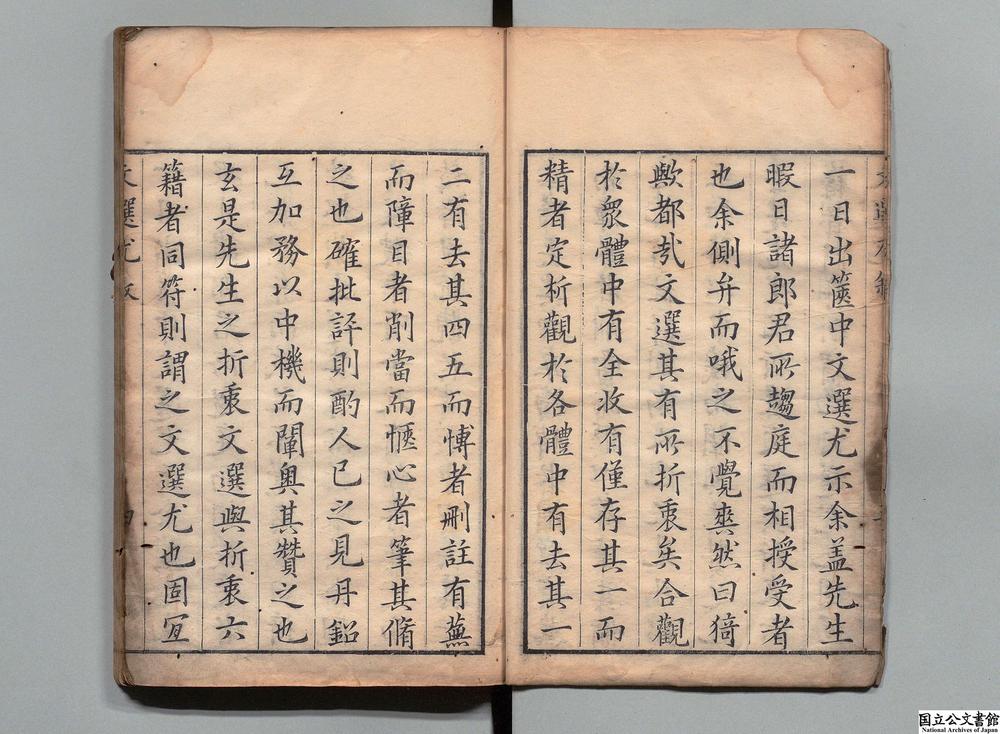 一日出篋中文選尤示余盖先生
暇日諸郎君所趨庭而相授受者
也余側弁而哦之不覺爽然曰猗
歟都哉文選其有所折衷矣合觀
於衆體中有全收有僅存其一而
精者定析觀於各體中有去其一
二有去其四五而愽者刪註有蕪
而障目者削當而愜心者筆其脩
之也確批評則酌人已之見丹鉛
互加務以中機而闡奥其贊之也
玄是先生之折衷文選與折衷六
籍者同符則謂之文選尤也固宜
文選尤
国立公文書館
National Archives of Japan